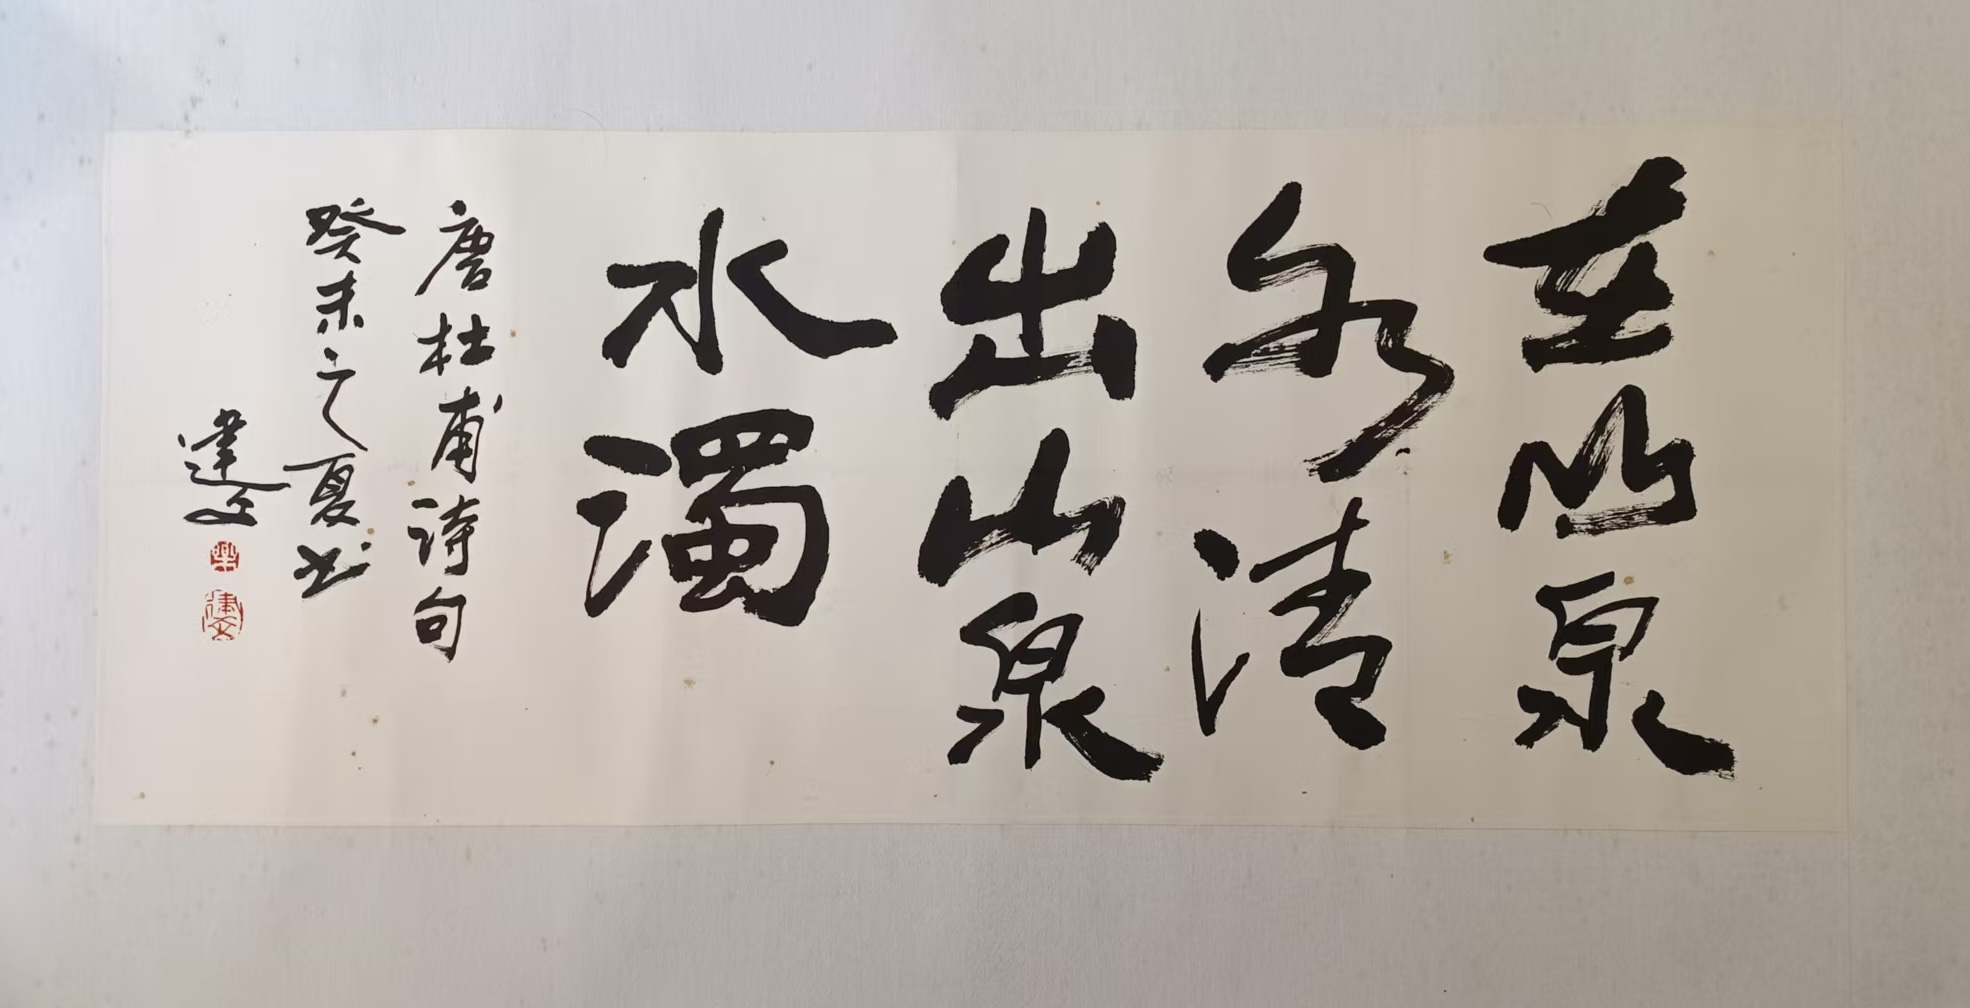 在山泉
水清
出山泉
水濁
唐杜甫诗句
癸未之夏书
建文